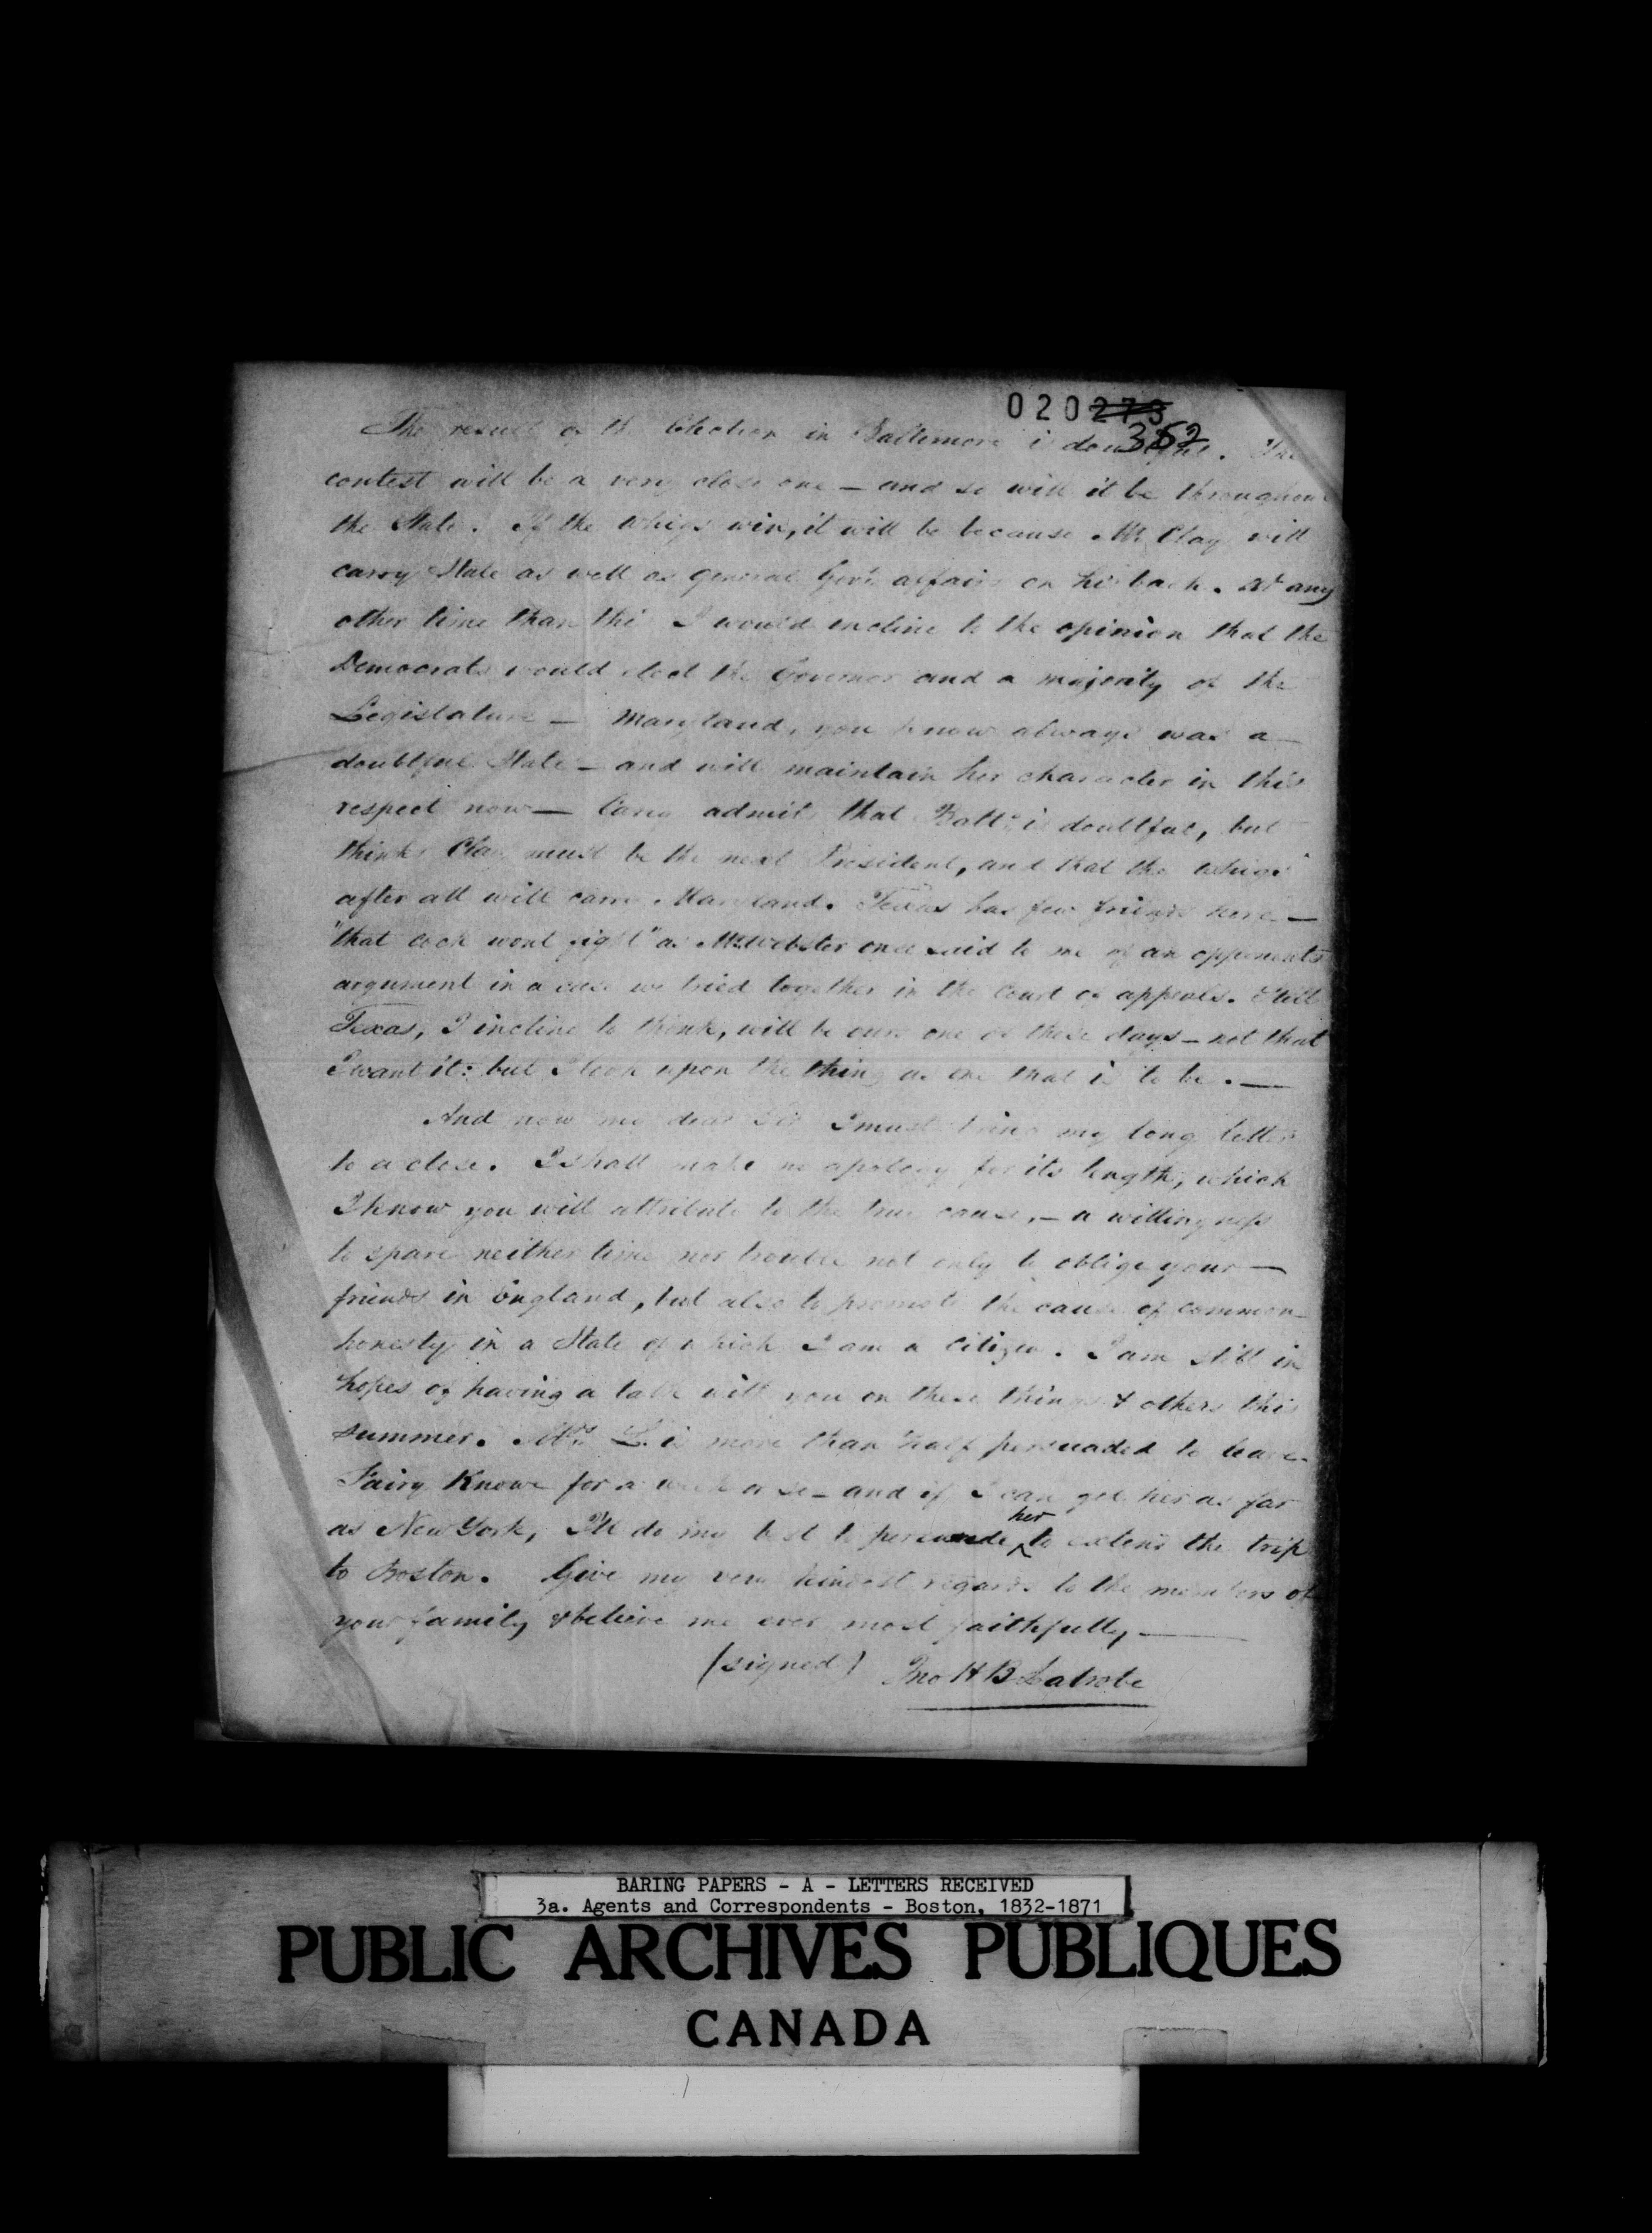 020273
352
The result of the Election in Baltimore is doubtful. The
contest will be a very close one — and so will it be throughout
the State. If the Whigs win, it will be because Mr. Clay will
carry State as well as general Gov't. affairs on his back. At any
other time than this I would incline to the opinion that the
Democrats would elect the Governor and a majority of the
Legislature — Maryland, you know always was a
doubtful State — and will maintain her character in this
respect now — admits that Balto. is doubtful, but
thinks Clay must be the next President, and that the Whigs
after all will carry Maryland. Texas has few friends here —
"that cock wont fight" as Mr. Webster once said to me of an opponents
argument in a case we tried together in the Court of appeals. Still
Texas, I incline to think, will be ours one of these days — not that
I want it: but I look upon the thing as one that is to be. —
And now my dear Sir I must bring my long letter
to a close. I shall make no apology for its length, which
I know you will attribute to the true cause, — a willingness
to spare neither time nor trouble not only to oblige your —
friends in England, but also to promote the cause of common
honesty in a State of which I am a Citizen. I am still in
hopes of having a talk with you on these things & others this
summer. Mrs. L. is more than half persuaded to leave
Fairy Knowe for a week or so — and if I can get her as far
as New York, I'll do my best to persuade her to extend the trip
to Boston. Give my very kindest regards to the members of
your family & believe me ever most faithfully —
(signed) Jno H B Latrobe
BARING PAPERS - A - LETTERS RECEIVED
3a. Agents and Correspondents - Boston, 1832-1871
PUBLIC ARCHIVES PUBLIQUES
CANADA